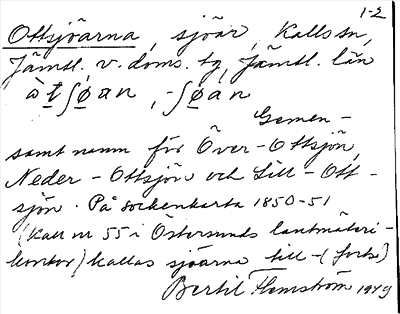 1-2
Ottsjöarna, sjöar, Kalls sn,
Jämtl. v. doms. tg, Jämtl. län
òt̲ʃø̲an, -ʃø̲an
Gemen-
samt namn för Över-Ottsjön,
Neder-Ottsjön och Lill-Ott-
sjön. På sockenkarta 1850-51
(Kall nr 55 i Östersunds lantmäteri-
kontor) kallas sjöarna till-(forts)
Bertil Flemström 1949